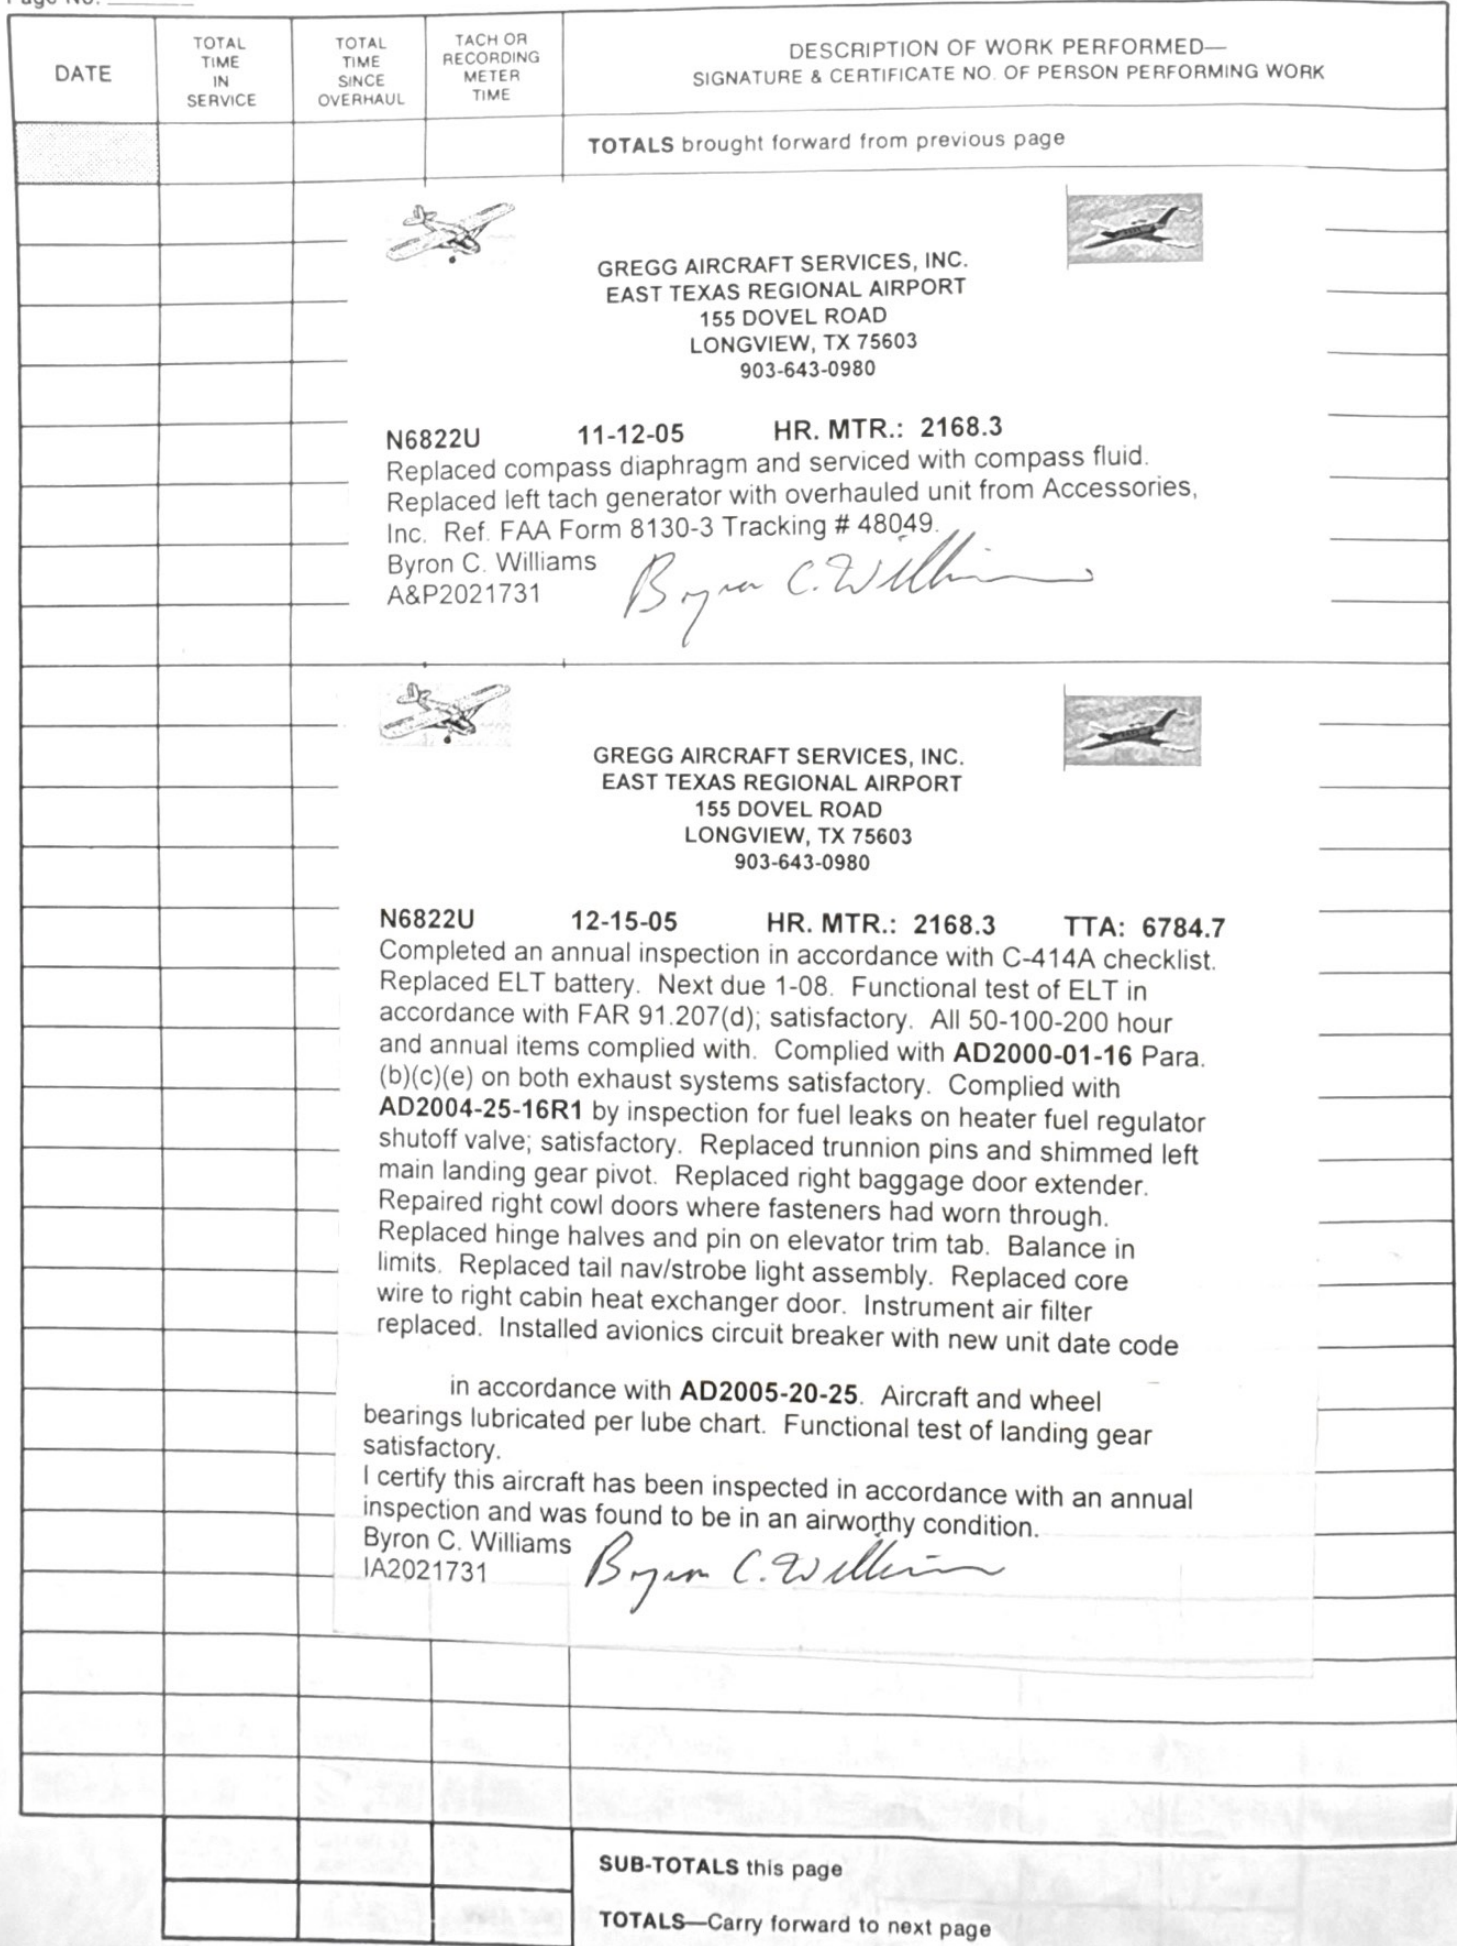 Page No.
DATE
TOTAL
TIME
IN
SERVICE
TOTAL
TIME
SINCE
OVERHAUL
TACH OR
RECORDING
METER
TIME
DESCRIPTION OF WORK PERFORMED—
SIGNATURE & CERTIFICATE NO. OF PERSON PERFORMING WORK
TOTALS brought forward from previous page
GREGG AIRCRAFT SERVICES, INC.
EAST TEXAS REGIONAL AIRPORT
155 DOVEL ROAD
LONGVIEW, TX 75603
903-643-0980
N6822U 11-12-05 HR. MTR.: 2168.3
Replaced compass diaphragm and serviced with compass fluid.
Replaced left tach generator with overhauled unit from Accessories,
Inc. Ref. FAA Form 8130-3 Tracking # 48049.
Byron C. Williams
A&P2021731
Byron C. Williams
GREGG AIRCRAFT SERVICES, INC.
EAST TEXAS REGIONAL AIRPORT
155 DOVEL ROAD
LONGVIEW, TX 75603
903-643-0980
N6822U 12-15-05 HR. MTR.: 2168.3 TTA: 6784.7
Completed an annual inspection in accordance with C-414A checklist.
Replaced ELT battery. Next due 1-08. Functional test of ELT in
accordance with FAR 91.207(d); satisfactory. All 50-100-200 hour
and annual items complied with. Complied with AD2000-01-16 Para.
(b)(c)(e) on both exhaust systems satisfactory. Complied with
AD2004-25-16R1 by inspection for fuel leaks on heater fuel regulator
shutoff valve; satisfactory. Replaced trunnion pins and shimmed left
main landing gear pivot. Replaced right baggage door extender.
Repaired right cowl doors where fasteners had worn through.
Replaced hinge halves and pin on elevator trim tab. Balance in
limits. Replaced tail nav/strobe light assembly. Replaced core
wire to right cabin heat exchanger door. Instrument air filter
replaced. Installed avionics circuit breaker with new unit date code
in accordance with AD2005-20-25. Aircraft and wheel
bearings lubricated per lube chart. Functional test of landing gear
satisfactory.
I certify this aircraft has been inspected in accordance with an annual
inspection and was found to be in an airworthy condition.
Byron C. Williams
IA2021731
Byron C. Williams
SUB-TOTALS this page
TOTALS—Carry forward to next page